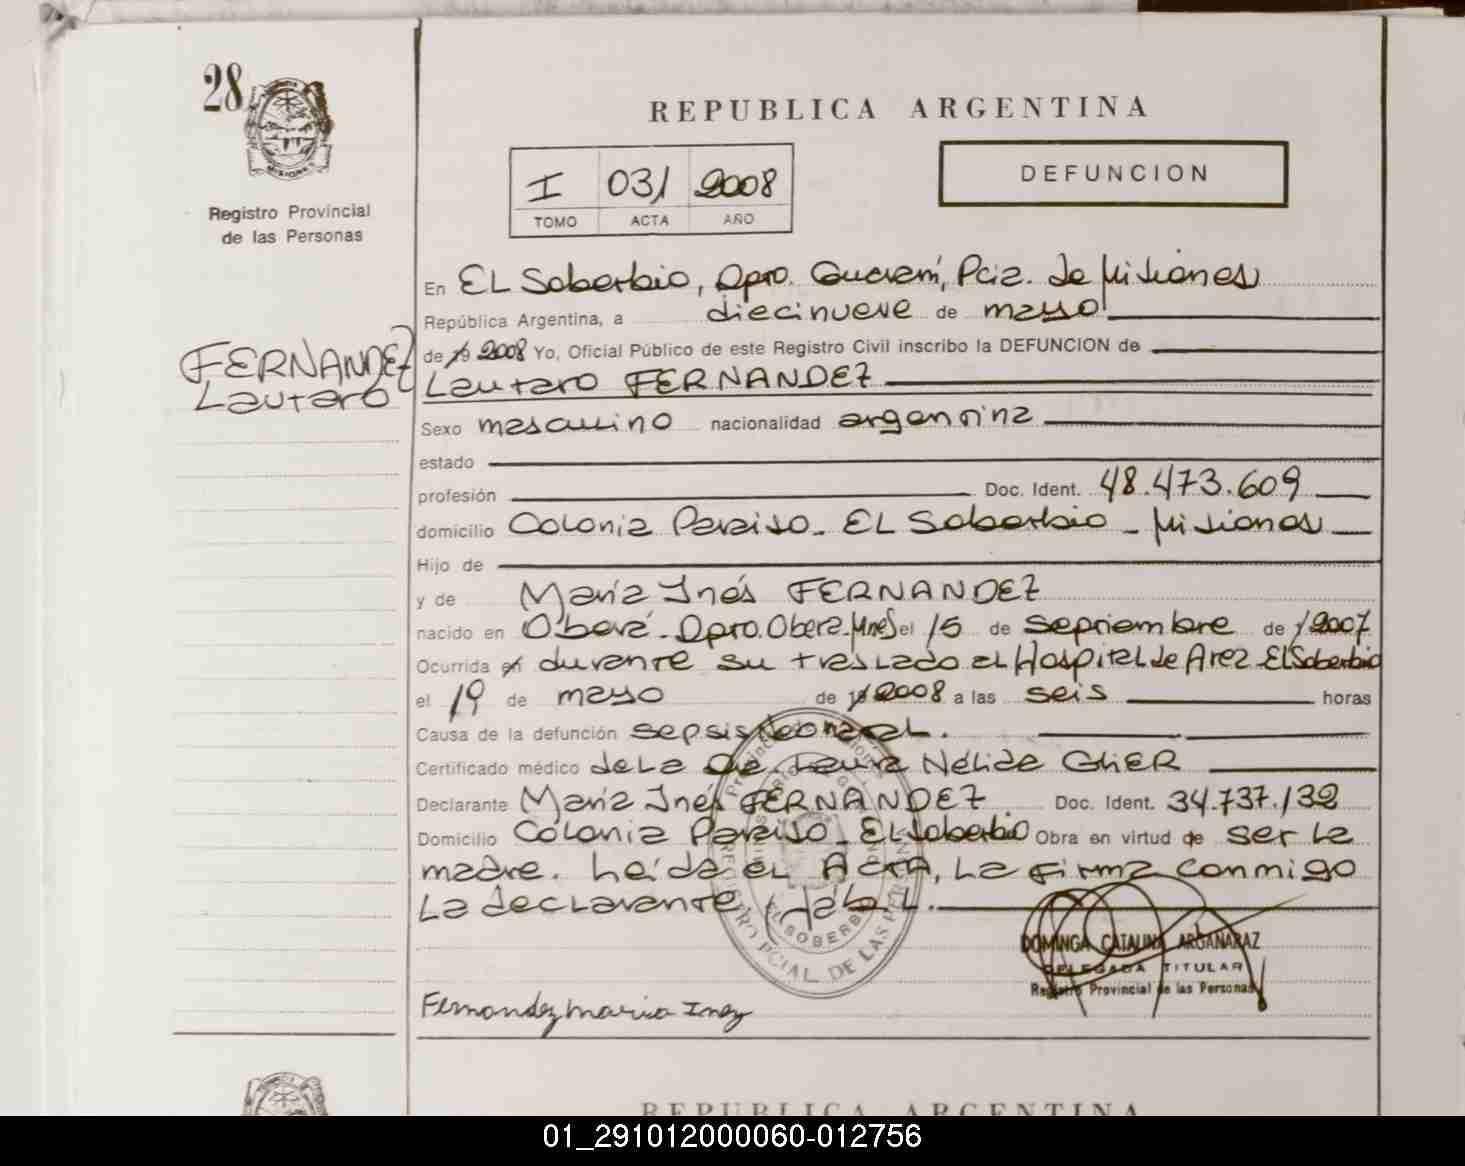 28
REPUBLICA ARGENTINA
I 031 2008
TOMO ACTA AÑO
DEFUNCION
Registro Provincial
de las Personas
FERNANDEZ
Lautaro
En EL Soberbio, Dpto. Guaraní, Pcia. de Misiones
República Argentina, a diecinueve de mayo
de 19 2008 Yo, Oficial Público de este Registro Civil inscribo la DEFUNCION de
Lautaro FERNANDEZ
Sexo masculino nacionalidad argentina
estado
profesión Doc. Ident. 48.473.609
domicilio Colonia Paraiso - EL Soberbio - Misiones
Hijo de
y de María Inés FERNANDEZ
nacido en Oberá - Dpto. Oberá - Mnes el 15 de septiembre de 2007
Ocurrida en durante su traslado al Hospital de Area - El Soberbio
el 19 de mayo de 19 2008 a las seis horas
Causa de la defunción sepsis Neonatal.
Certificado médico de La Laura Nélida GLIER
Declarante María Inés FERNANDEZ Doc. Ident. 34.737.132
Domicilio Colonia Paraiso - El Soberbio Obra en virtud de ser la
madre. Leída el Acta, La firma conmigo
La declarante
DOMINGA CATALINA ARGAÑARAZ
DELEGADA TITULAR
Registro Provincial de las Personas
Fernandez maria Inez
REPUBLICA ARGENTINA
01_291012000060-012756